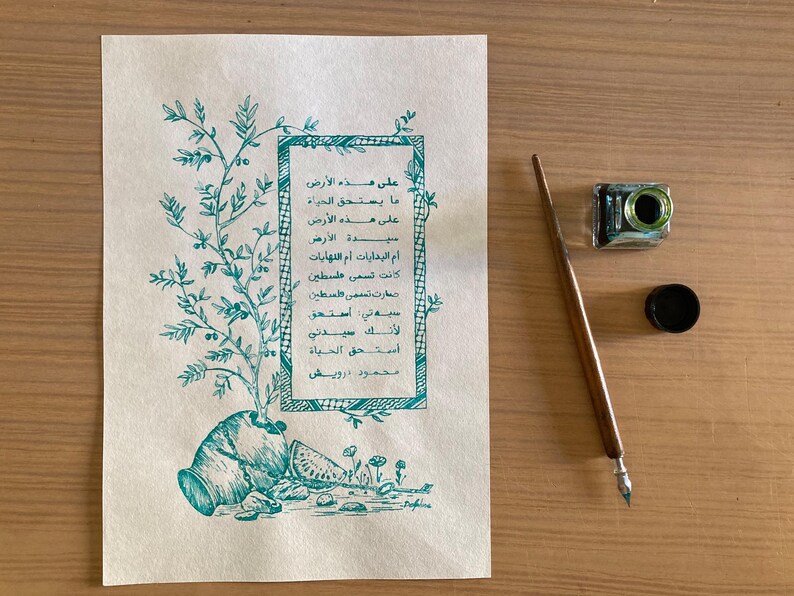 على هذه الأرض
ما يستحق الحياة
على هذه الأرض
سيدة الأرض
أم البدايات أم النهايات
كانت تسمى فلسطين
صارت تسمى فلسطين
سيدتي: أستحق
لأنك سيدتي
أستحق الحياة
محمود درويش
Delphine